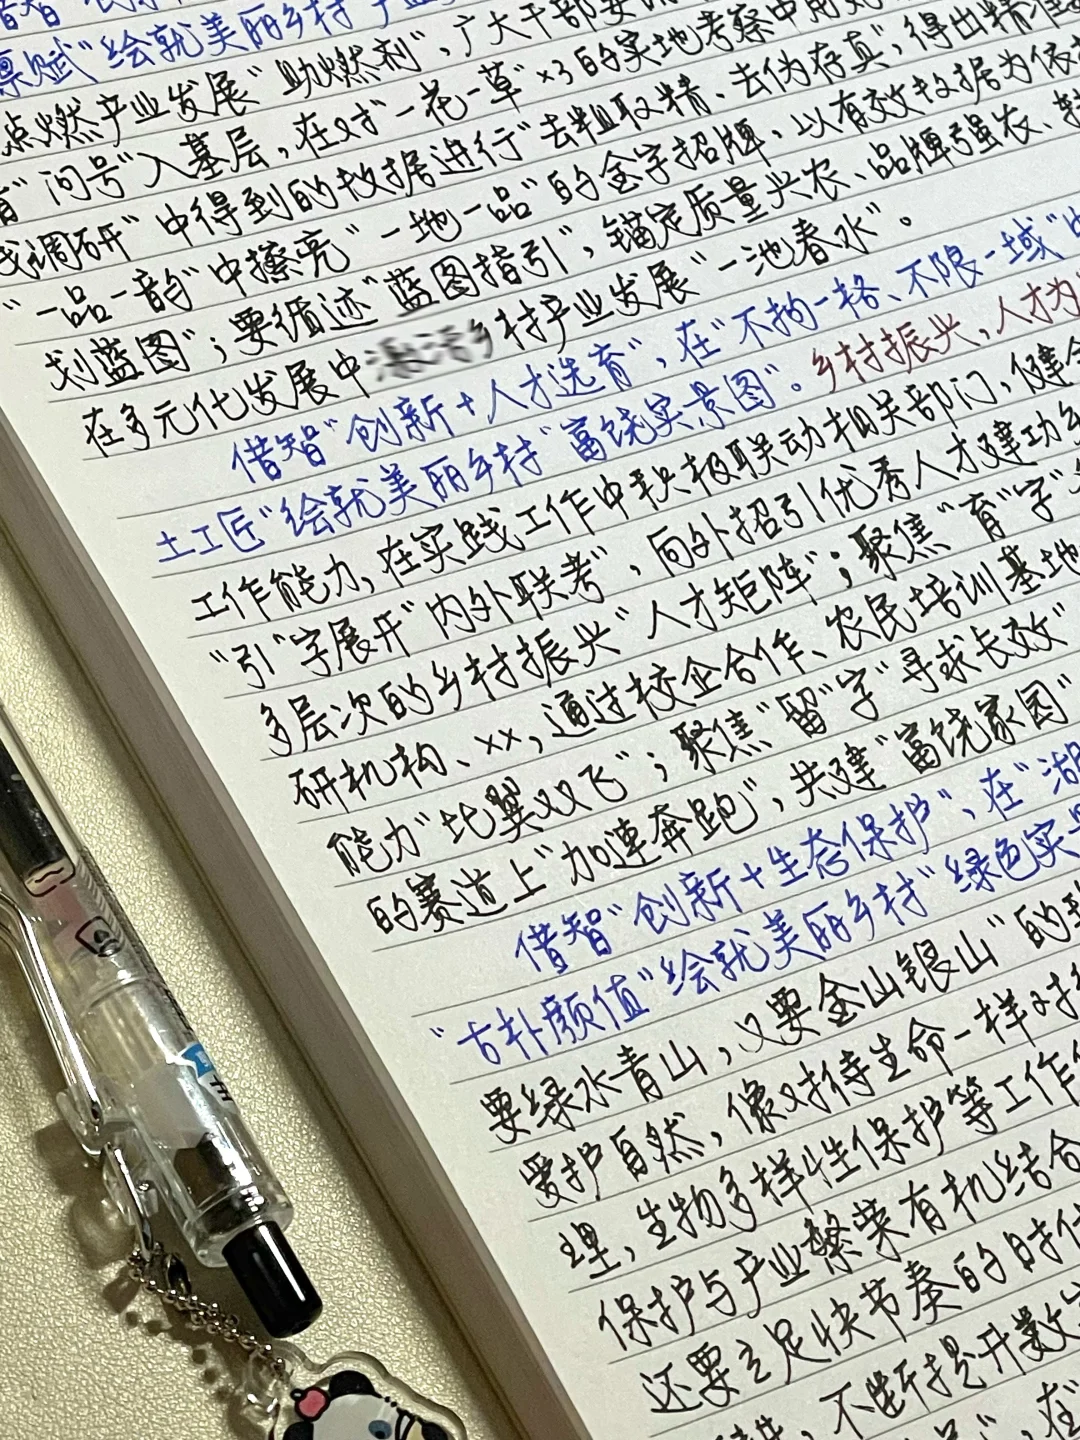 禀赋"绘就美丽乡村"产业
点燃产业发展"助燃剂",广大干部要
"问号"入基层,在对"一花一草"×3的实地考察中用
调研"中得到的数据进行"去粗取精、去伪存真",得出精准
"一品一韵"中擦亮"一地一品"的金字招牌,以有效数据为依
划蓝图";要循迹"蓝图指引",锚定质量兴农、品牌强农、
在多元化发展中激活乡村产业发展"一池春水"。
借智"创新+人才选育",在"不拘一格、不限一域"
土工匠"绘就美丽乡村"富饶实景图"。乡村振兴,人才为
工作能力,在实践工作中积极联动相关部门,健全
"引"字展开"内外联考",向外招引优秀人才建功
多层次的乡村振兴"人才矩阵";聚焦"育"字
研机构、××,通过校企合作、农民培训基地
能力"比翼双飞";聚焦"留"字"寻求长效"
的赛道上"加速奔跑",共建"富饶家园"
借智"创新+生态保护",在"湖
"古朴颜值"绘就美丽乡村"绿色实景
要绿水青山,又要金山银山"的
爱护自然,像对待生命一样对待
理,生物多样性保护等工作
保护与产业繁荣有机结合
还要立足快节奏的时代
不断提升数
品",在